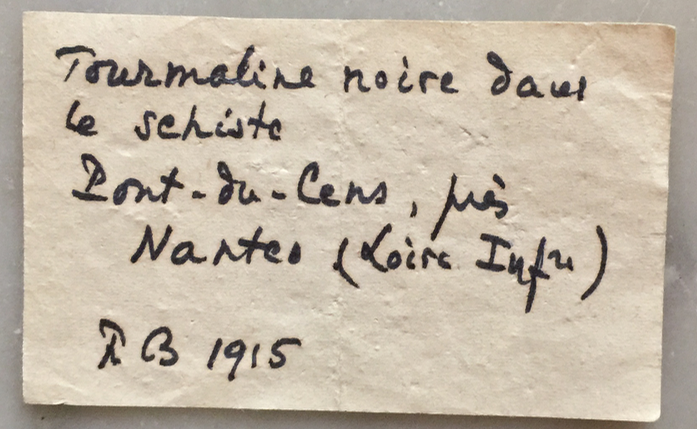 Tourmaline noire dans
le schiste
Pont-du-Cens, près
Nantes (Loire Infre)
R B 1915